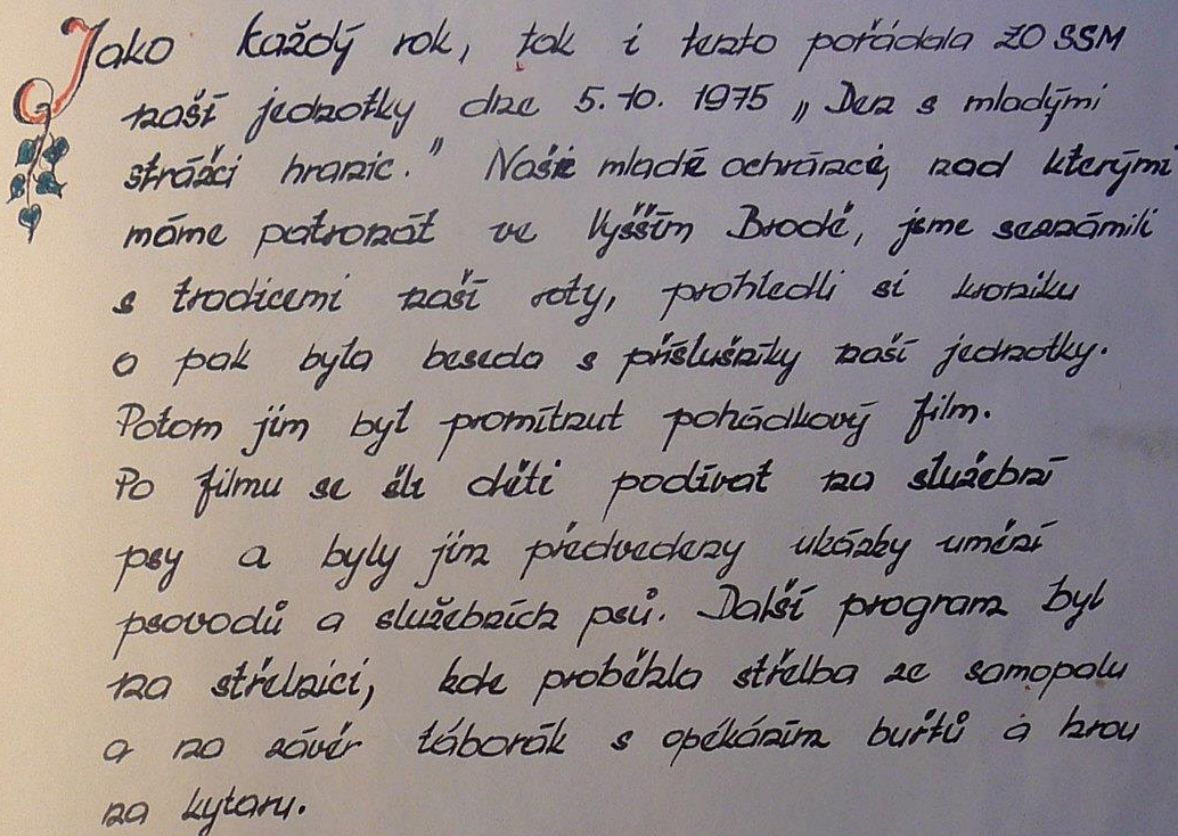 Jako každý rok, tak i tento pořádala ZO SSM
naší jednotky dne 5. 10. 1975 „Den s mladými
strážci hranic." Naše mladé ochránce, nad kterými
máme patronát ve Vyšším Brodě, jsme seznámili
s tradicemi naší roty, prohledli si kroniku
a pak byla beseda s příslušníky naší jednotky.
Potom jim byl promítnut pohádkový film.
Po filmu se šli děti podívat na služební
psy a byly jim předvedeny ukázky umění
psovodů a služebních psů. Další program byl
na střelnici, kde proběhla střelba ze samopalu
a na závěr táborák s opékáním buřtů a hrou
na kytaru.